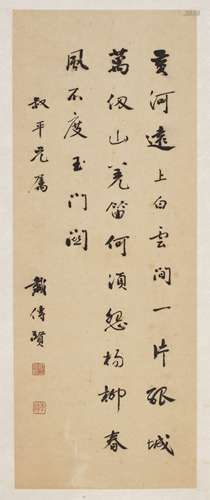 黃河遠上白雲間一片孤城
萬仞山羌笛何須怨楊柳春
風不度玉門關
叔平兄屬
戴傳賢